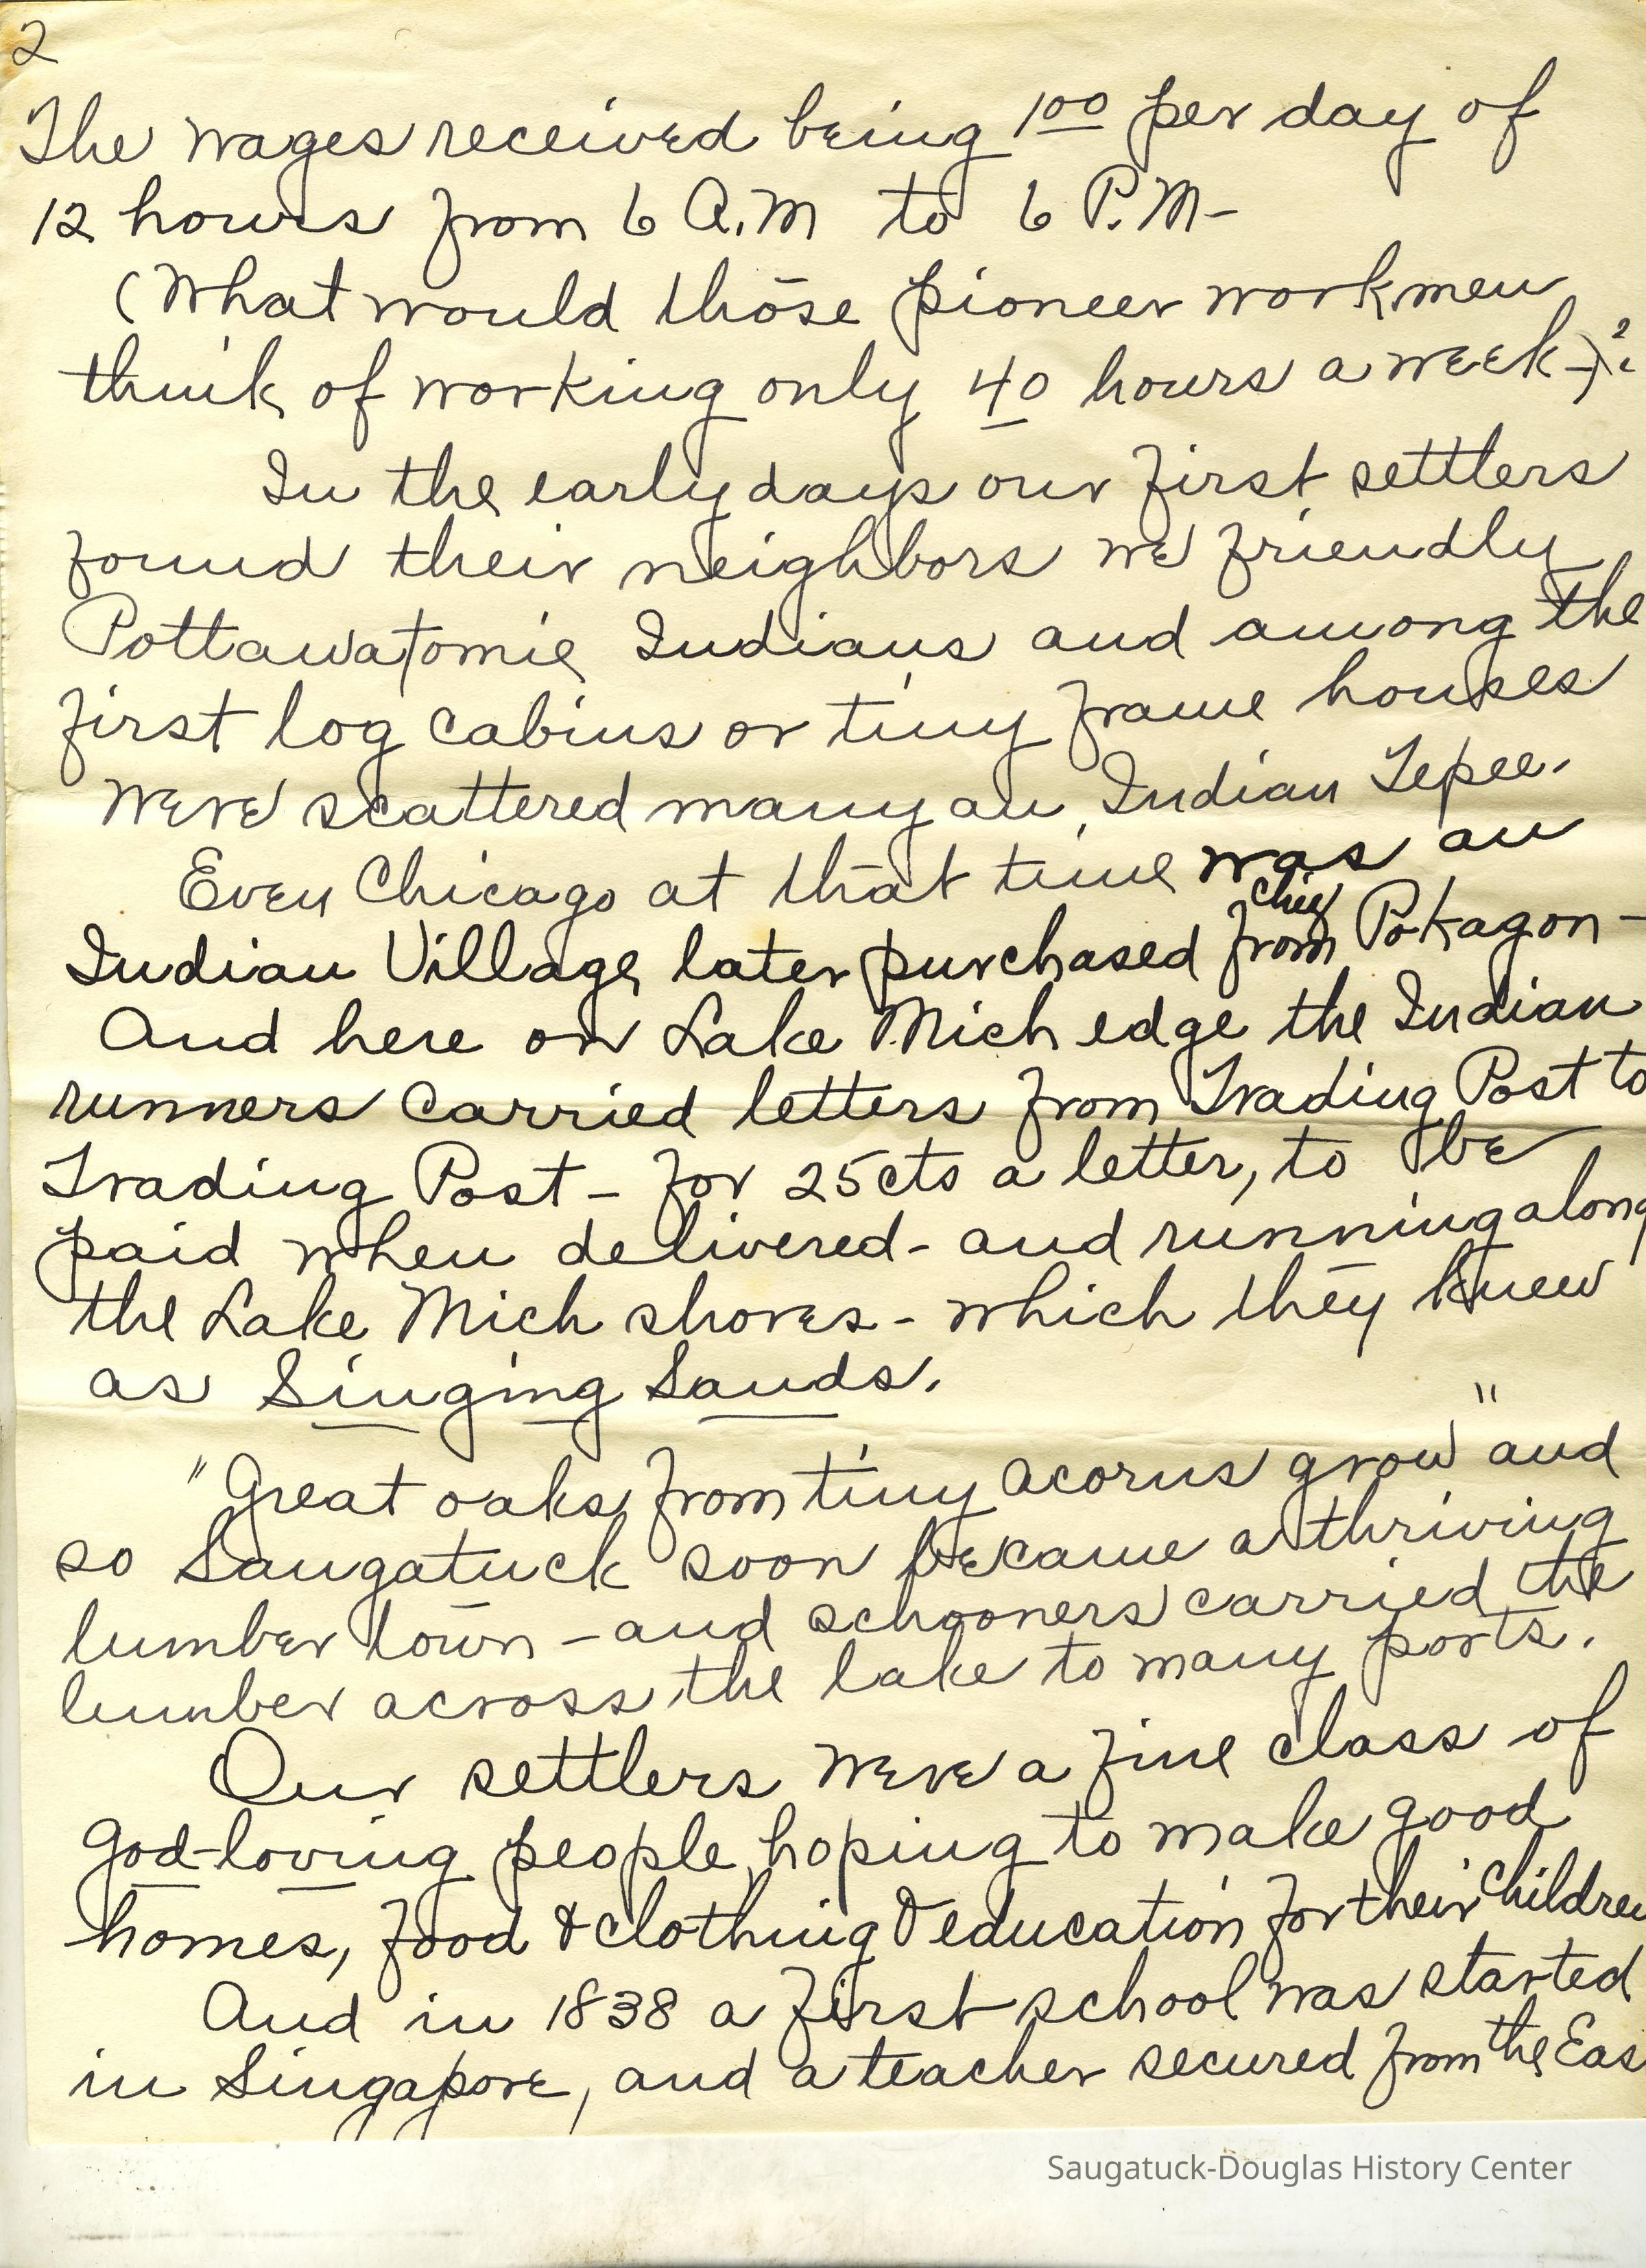 2
The wages received being 100 per day of
12 hours from 6 A.M to 6 P.M-
(What would those pioneer workmen
think of working only 40 hours a week-)?
In the early days our first settlers
found their neighbors we friendly
Pottawatomie Indians and among the
first log cabins or tiny frame houses
were scattered many an Indian Tepee.
Even Chicago at that time was an
chief
Indian Village later purchased from Pokagon-
And here on Lake Mich edge the Indian
runners carried letters from Trading Post to
Trading Post - for 25cts a letter, to be
paid when delivered - and running along
the Lake Mich shores - which they knew
as Singing Sands.
"Great oaks from tiny acorns grow" and
so Saugatuck soon became a thriving
lumber town - and schooners carried the
lumber across the lake to many ports.
Our settlers were a fine class of
God-loving people hoping to make good
homes, food & clothing & education for their children
And in 1838 a first school was started
in Singapore, and a teacher secured from the Eas
Saugatuck-Douglas History Center